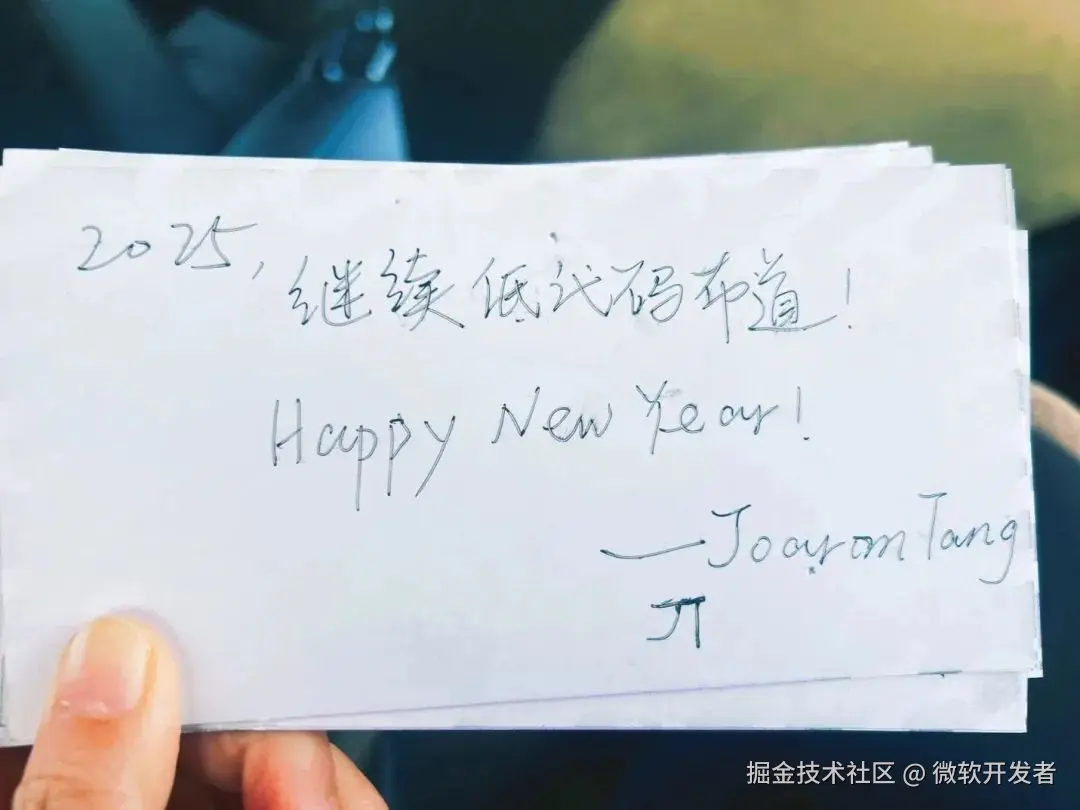 2025, 继续低代码布道!
Happy New Year!
—Joayrom Tang
掘金技术社区 @ 微软开发者